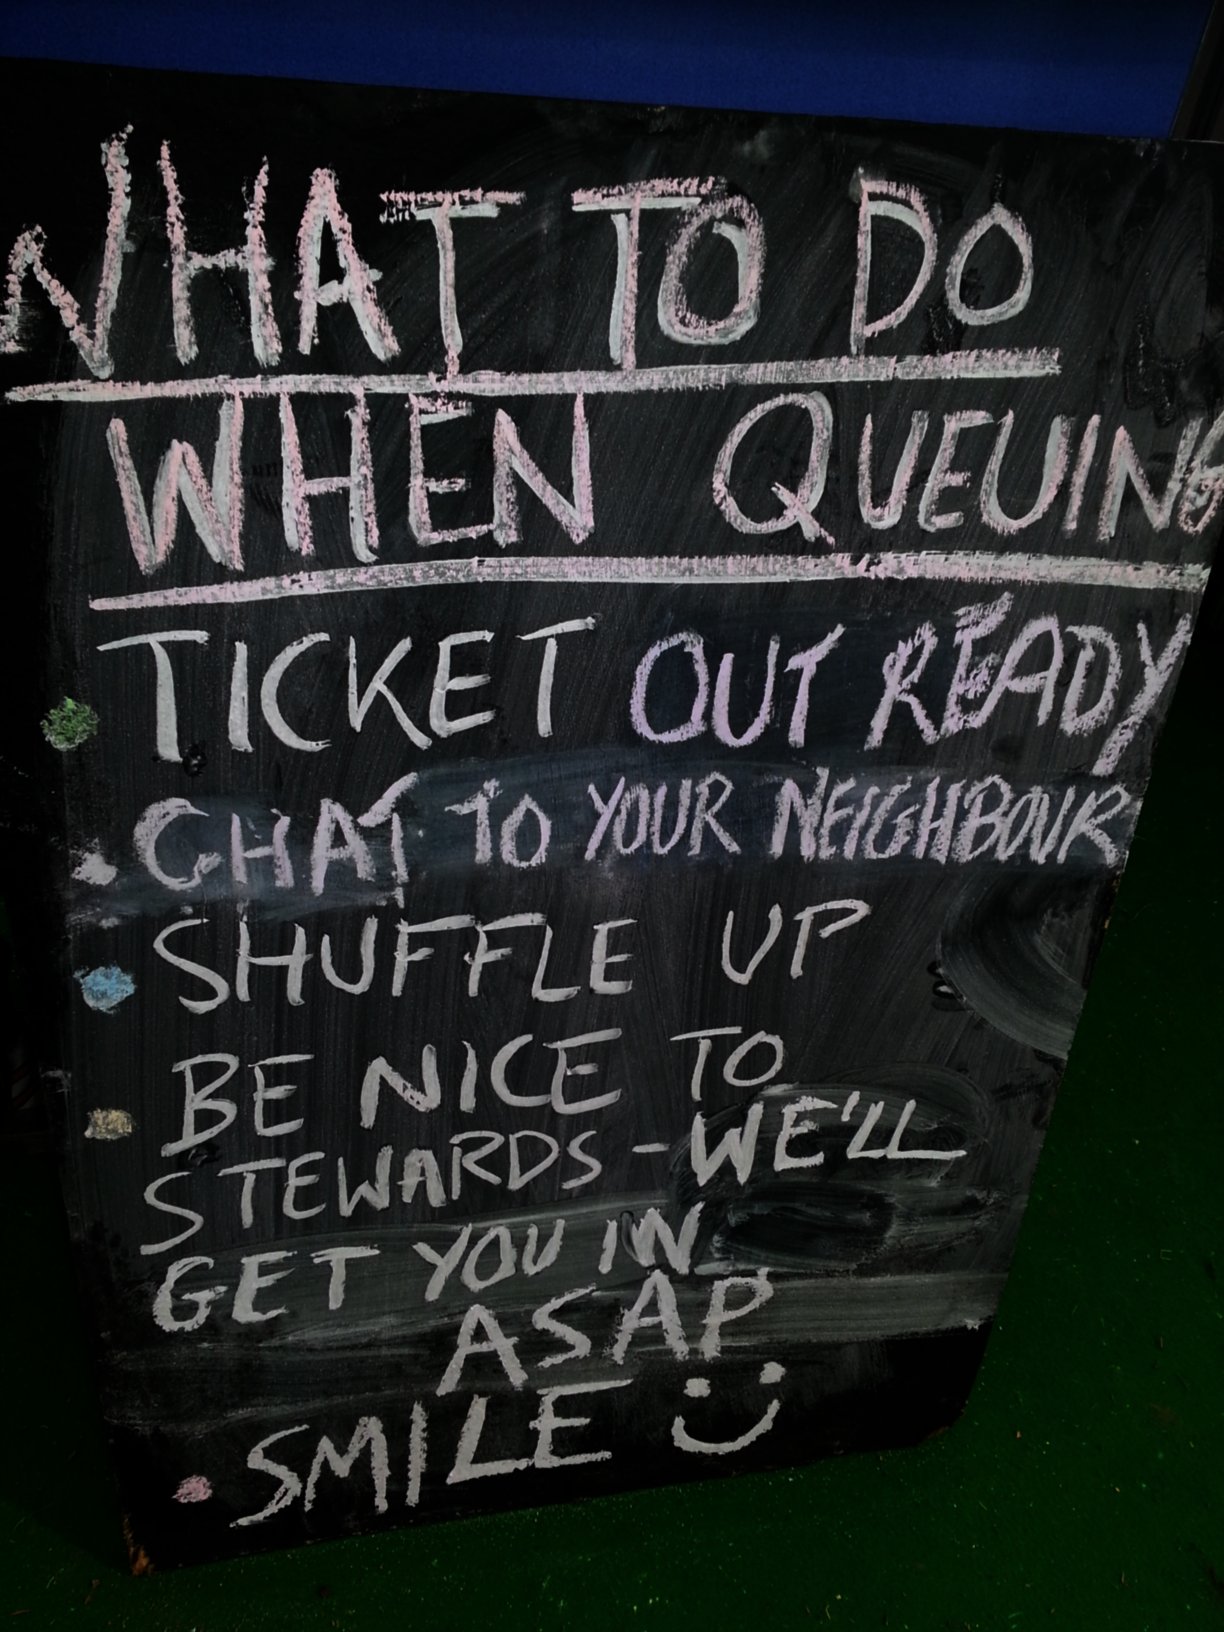 WHAT TO DO
WHEN QUEUING
TICKET OUT READY
CHAT TO YOUR NEIGHBOUR
SHUFFLE UP
BE NICE TO
STEWARDS - WE'LL
GET YOU IN
ASAP
SMILE